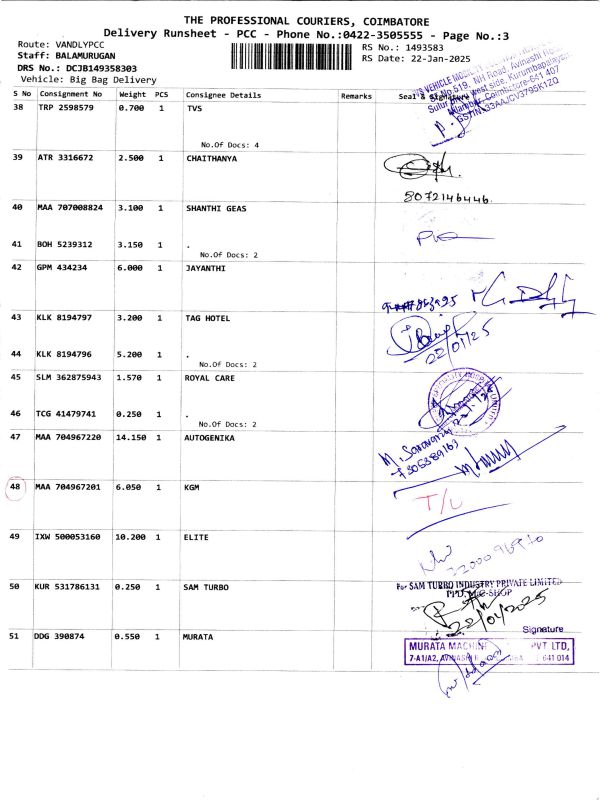 THE PROFESSIONAL COURIERS, COIMBATORE
Delivery Runsheet - PCC - Phone No.:0422-3505555 - Page No.:3
Route: VANDLYPCC
Staff: BALAMURUGAN
DRS No.: DCJB149358303
Vehicle: Big Bag Delivery
RS No.: 1493583
RS Date: 22-Jan-2025
S No Consignment No Weight PCS Consignee Details Remarks Seal &
38 TRP 2598579 0.700 1 TVS
No.Of Docs: 4
39 ATR 3316672 2.500 1 CHAITHANYA
8072146446
40 MAA 707008824 3.100 1 SHANTHI GEAS
41 BOH 5239312 3.150 1 .
No.Of Docs: 2
42 GPM 434234 6.000 1 JAYANTHI
43 KLK 8194797 3.200 1 TAG HOTEL
22/01/25
44 KLK 8194796 5.200 1 .
No.Of Docs: 2
45 SLM 362875943 1.570 1 ROYAL CARE
46 TCG 41479741 0.250 1 .
No.Of Docs: 2
47 MAA 704967220 14.150 1 AUTOGENIKA
48 MAA 704967201 6.050 1 KGM
T/L
49 IXW 500053160 10.200 1 ELITE
50 KUR 531786131 0.250 1 SAM TURBO
For SAM TURBO INDUSTRY PRIVATE LIMITED
22/01/2025
Signature
51 DDG 390874 0.550 1 MURATA
MURATA PVT LTD,
7-A1/A2, 641 014